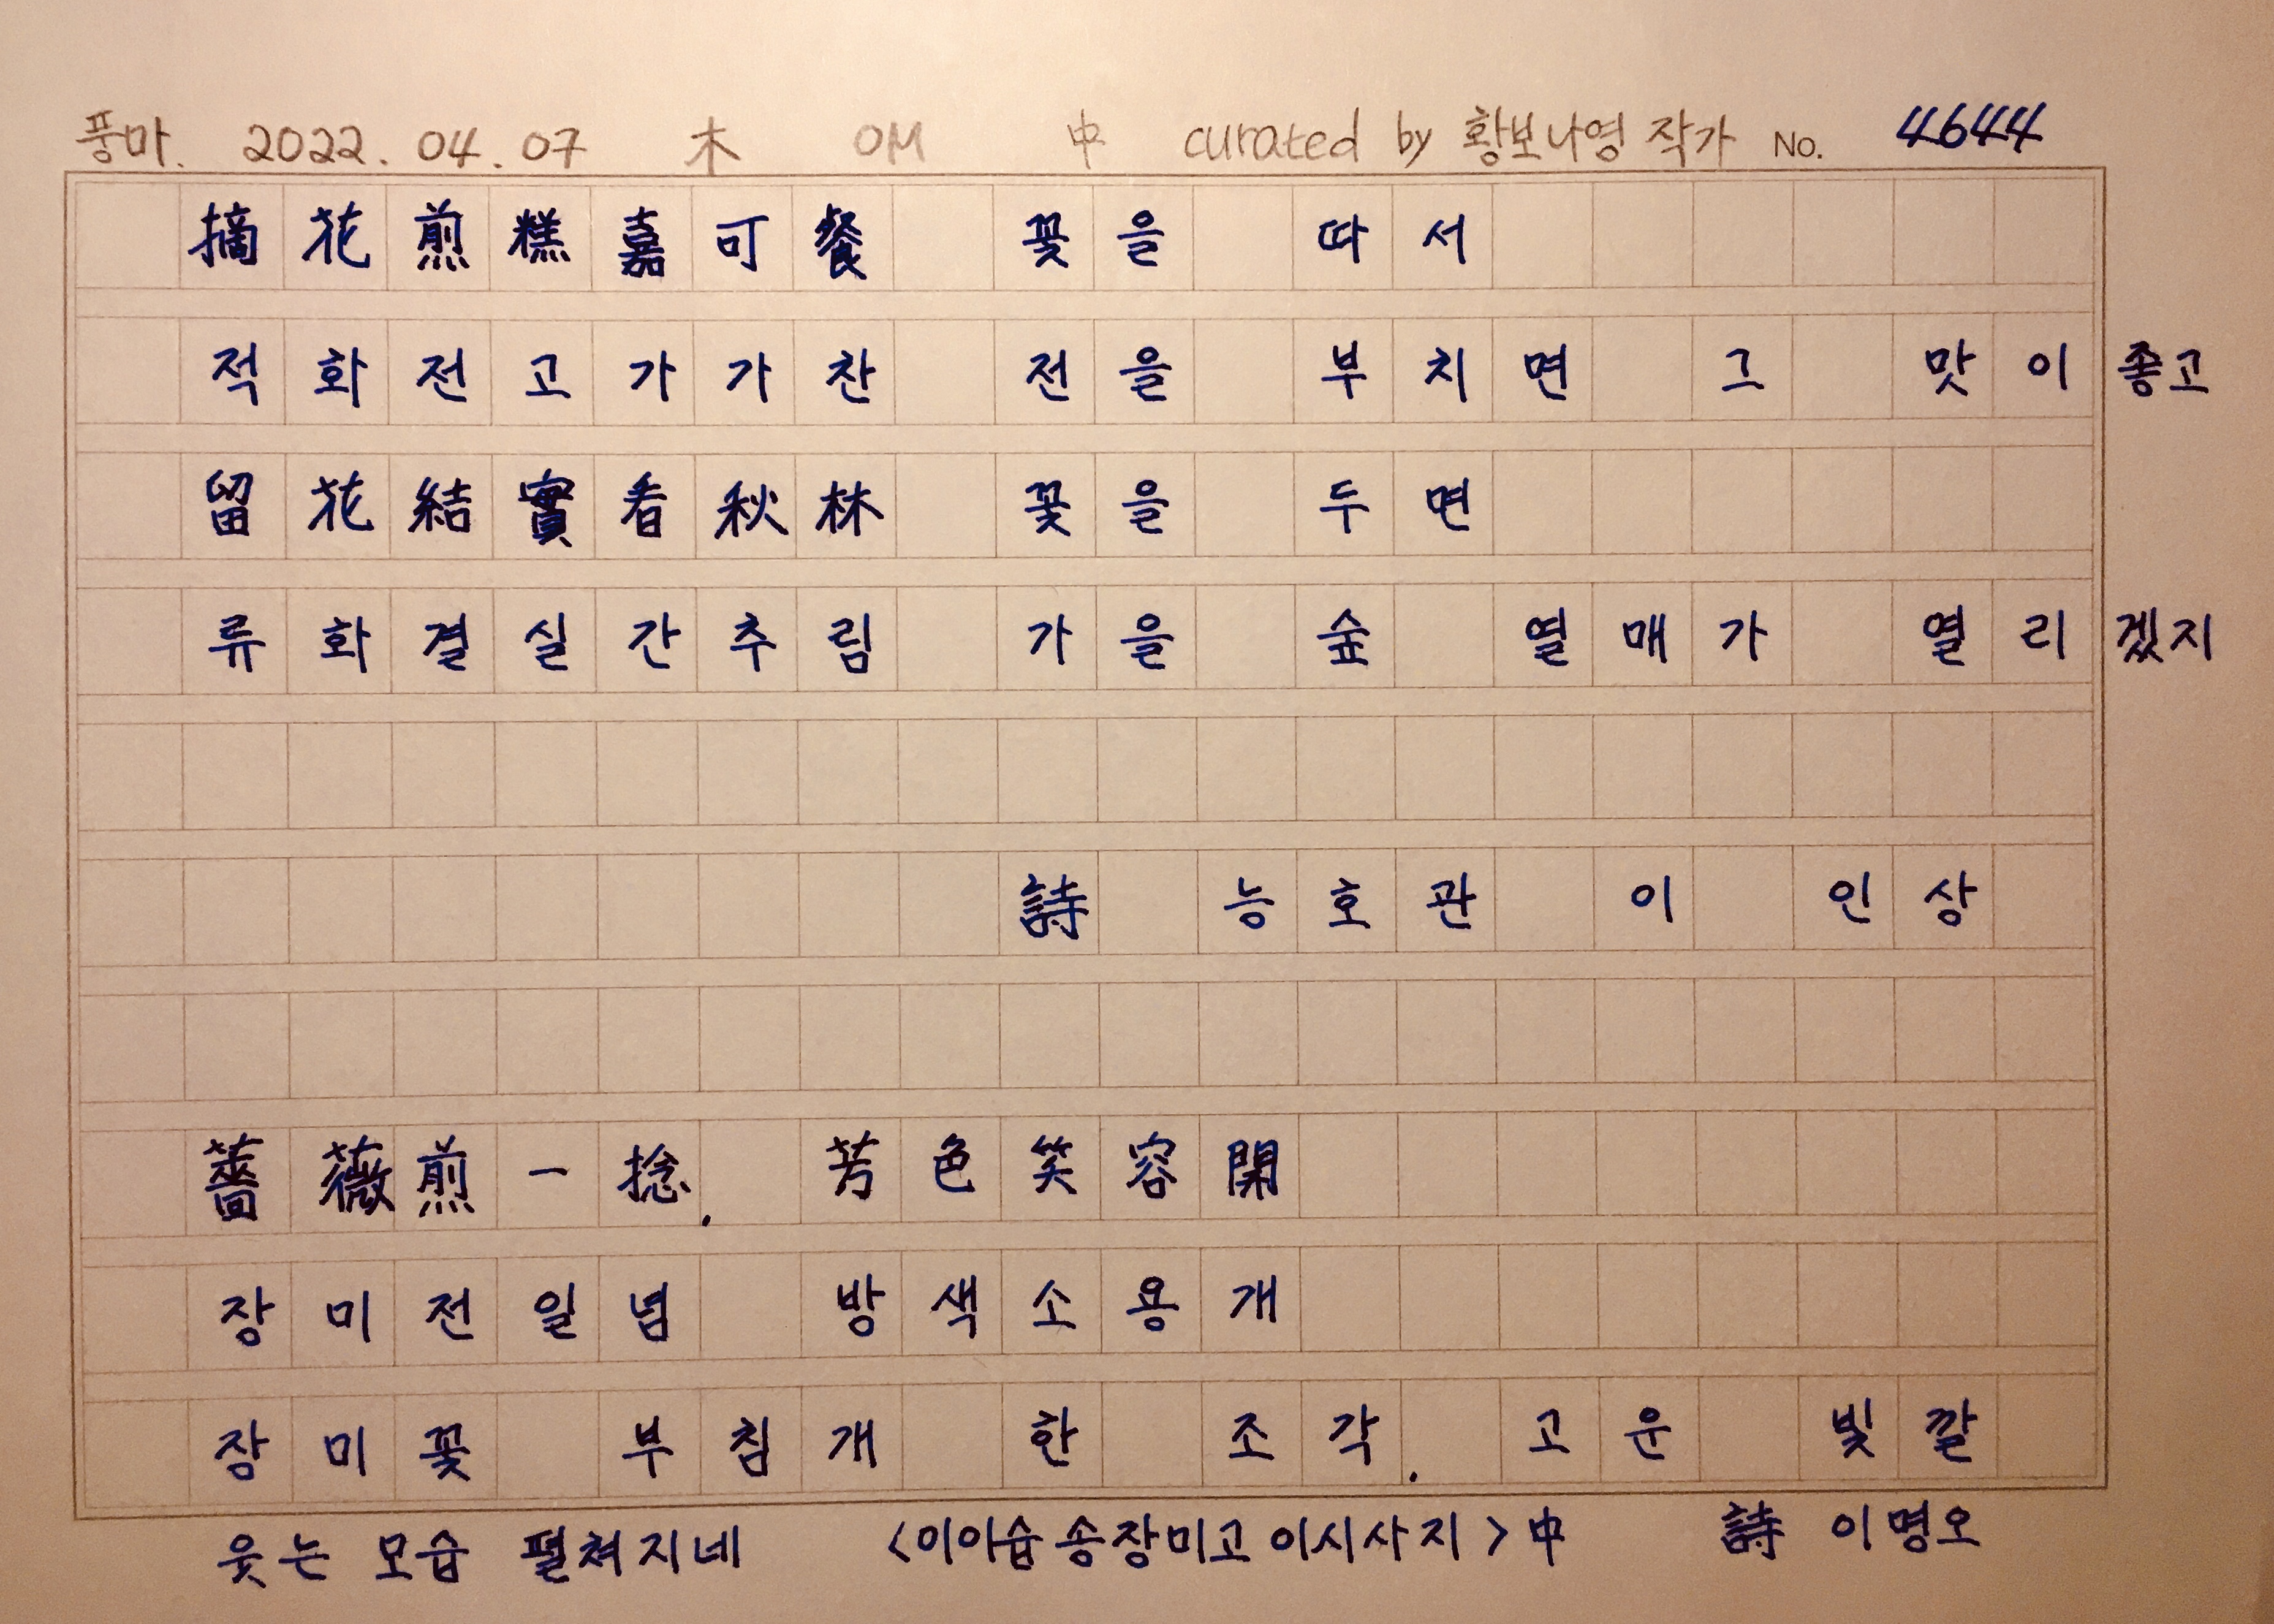 풍마. 2022. 04. 07 木 OM 中 curated by 황보나영 작가 No. 4644
摘花煎糕嘉可餐 꽃을 따서
적화전고가가찬 전을 부치면 그 맛이 좋고
留花結實看秋林 꽃을 두면
류화결실간추림 가을 숲 열매가 열리겠지
詩 능호관 이 인상
薔薇煎一捻. 芳色笑容開
장미전일념 방색소용개
장미꽃 부침개 한 조각. 고운 빛깔
웃는 모습 펼쳐지네 <이아숩송장미고이시사지>中 詩 이명오